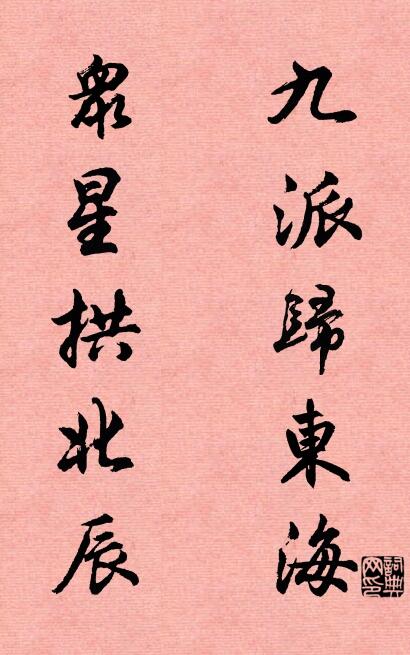 九派歸東海
眾星拱北辰
詞典
网印